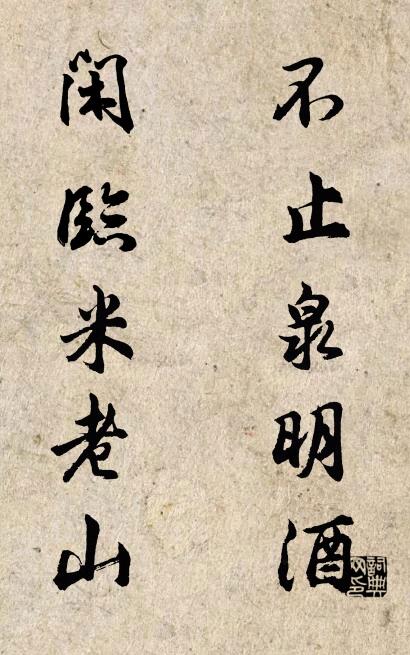 不止泉明酒
閑臨米老山